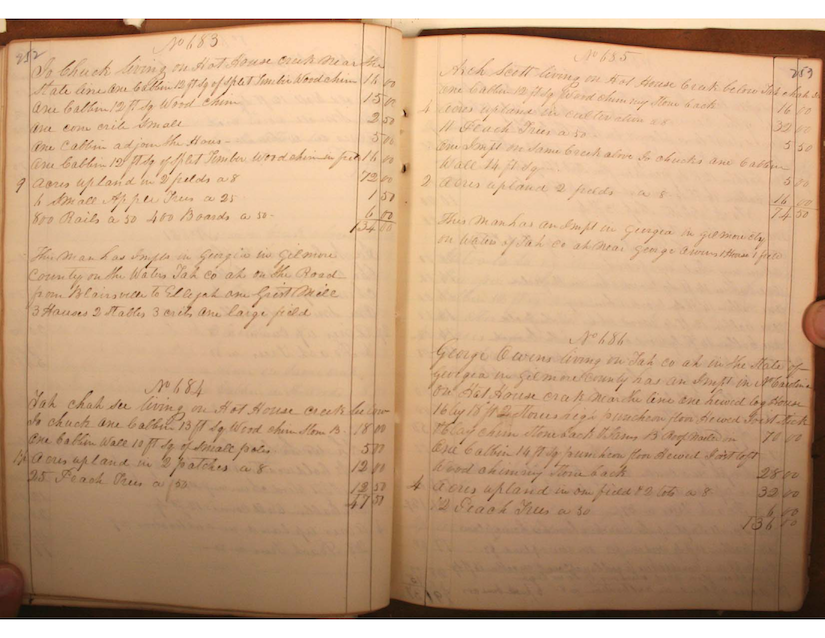 252
No 683
To Chuck living on Hot House creek near the
State line one Cabbin 12 ft Sq of Split Timber Wood chim 16 00
one Cabbin 12 ft Sq Wood chim 15 00
one corn crib Small 2 50
one Cabbin adjoin the Hous 5 00
one Cabbin 12 ft Sq of Split Timber Wood chim 16 00
9 Acres upland in 2 fields a 8 72 00
6 Small Apple Trees a 25 1 50
800 Rails a 50 400 Boards a 50 6 00
134 00
This Man has Impts in Georgia in Gilmore
County on the Waters Tah co ah on the Road
from Blairsville to Ellijah one Grist Mill
3 Houses 2 Stables 3 cribs one large field
No 684
Tah chah see living on Hot House creek below
To chuck one Cabbin 13 ft Sq Wood chim Stone B 18 00
one Cabbin Wall 10 ft Sq of Small poles 5 00
1½ Acres upland in 2 patches a 8 12 00
25 Peach Trees a 50 12 50
47 50
253
No 685
Arch Scott living on Hot House Creek below To chuck
one Cabbin 12 ft Sq Wood chimney Stone back 16 00
4 Acres upland in cultivation a 8 32 00
11 Peach Trees a 50 5 50
one Impt on Same Creek above To chucks one Cabbin
Wall 14 ft Sq 5 00
2 Acres upland 2 fields a 8 16 00
74 50
This Man has an Impt in Georgia in Gilmore Cty
on Waters of Tah co ah Near George Owens 1 House 1 field
No 686
George Owens living on Tah co ah in the State of
Georgia in Gilmore County has an Impt in N Carolina
on Hot House creek Near the line one hewed log House
16 by 18 ft 2 Stories high puncheon floor Hewed Joist
70 00
one Cabbin 14 ft Sq puncheon floor Hewed Joist loft
Wood chimney Stone back 28 00
4 Acres upland in on field & 2 lots a 8 32 00
12 Peach Trees a 50 6 00
136 00